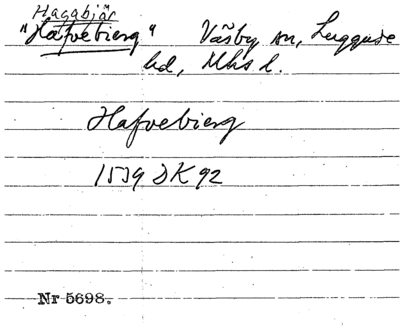 Hagabjär
"Hafvebierg" Väsby sn, Luggude
hd, Mhs l.
Hafvebierg
1539 DK 92
Nr 5698.